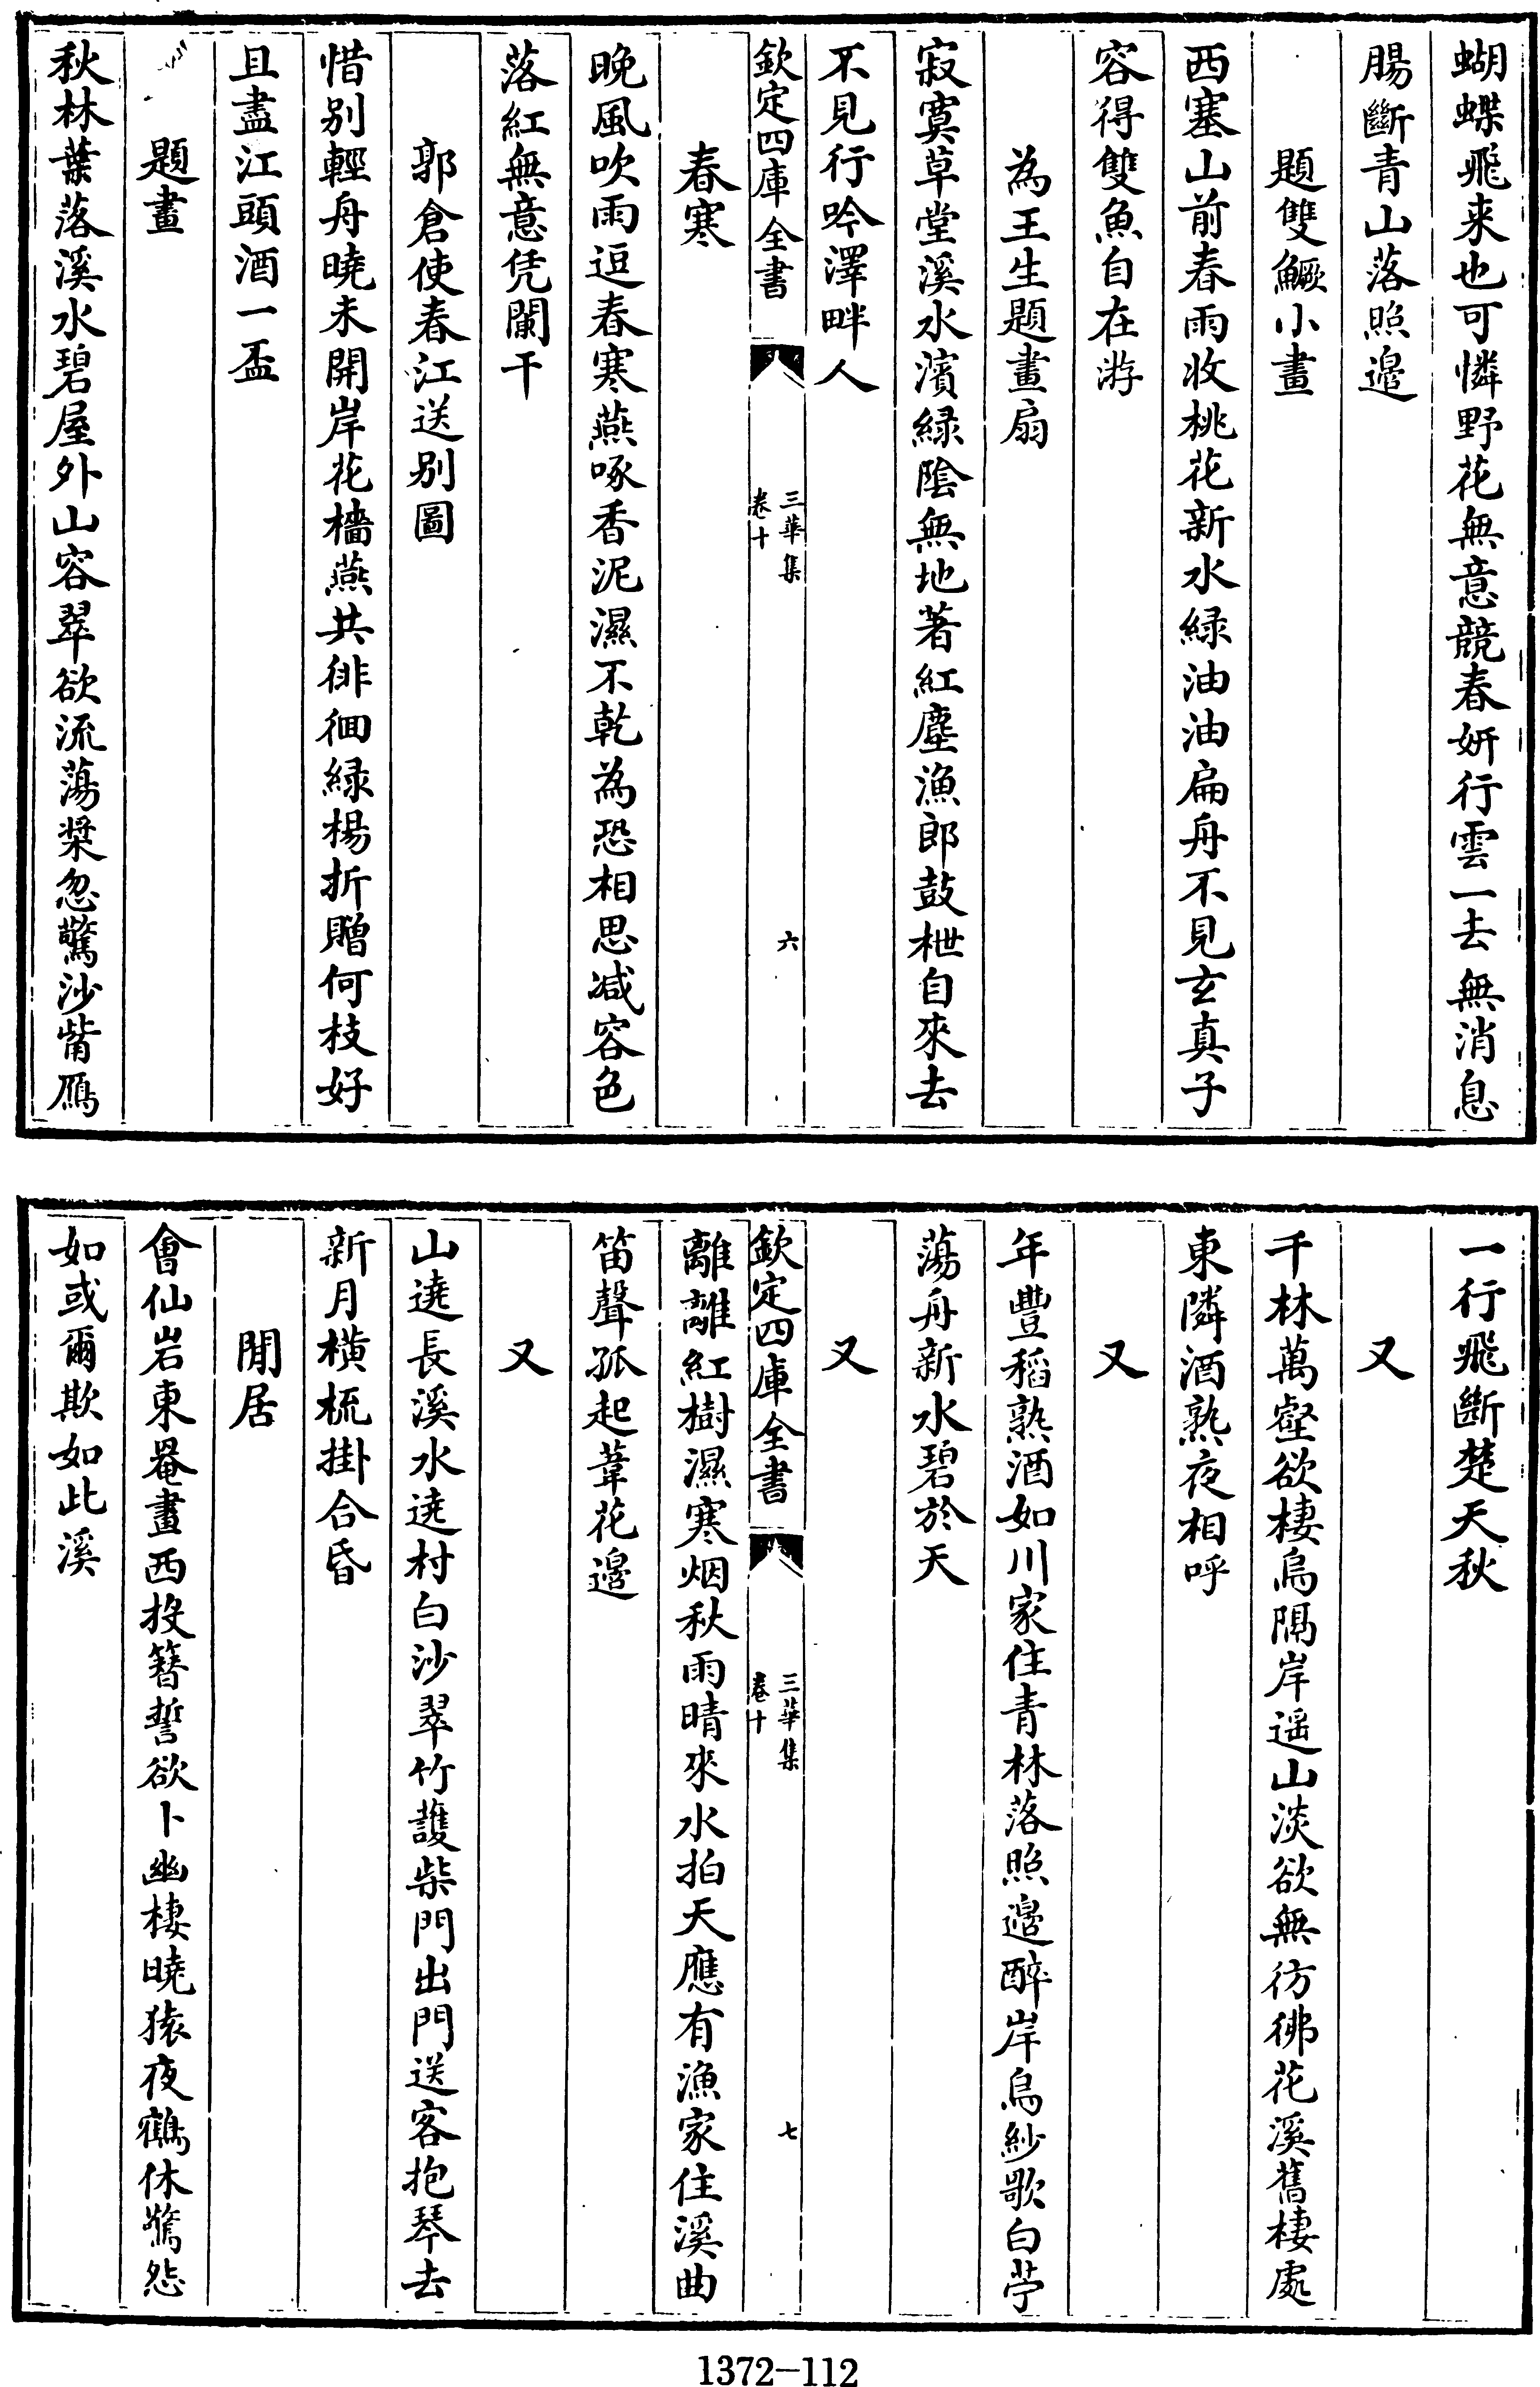 蝴蝶飛来也可憐野花無意競春妍行雲一去無消息
腸斷青山落照邉
題雙鱖小畫
西塞山前春雨收桃花新水緑油油扁舟不見玄真子
容得雙魚自在游
為王生題畫扇
寂寞草堂溪水濱緑陰無地著紅塵漁郎鼓枻自來去
不見行吟澤畔人
欽定四庫全書
三華集
卷十
六
春寒
晚風吹雨逗春寒燕啄香泥濕不乾為恐相思減容色
落紅無意凭闌干
郭倉使春江送别圖
惜别輕舟曉未開岸花檣燕共徘徊緑楊折贈何枝好
且盡江頭酒一盃
題畫
秋林葉落溪水碧屋外山容翠欲流蕩槳忽驚沙觜鴈
一行飛斷楚天秋
又
千林萬壑欲棲烏隔岸遥山淡欲無彷彿花溪舊棲處
東隣酒熟夜相呼
又
年豐稻熟酒如川家住青林落照邉醉岸烏紗歌白苧
蕩舟新水碧於天
又
欽定四庫全書
三華集
卷十
七
離離紅樹濕寒烟秋雨晴來水拍天應有漁家住溪曲
笛聲孤起葦花邉
又
山遶長溪水遶村白沙翠竹護柴門出門送客抱琴去
新月横梳掛合昏
閒居
會仙岩東罨畫西投簪誓欲卜幽棲曉猿夜鶴休驚怨
如或爾欺如此溪
1372-112